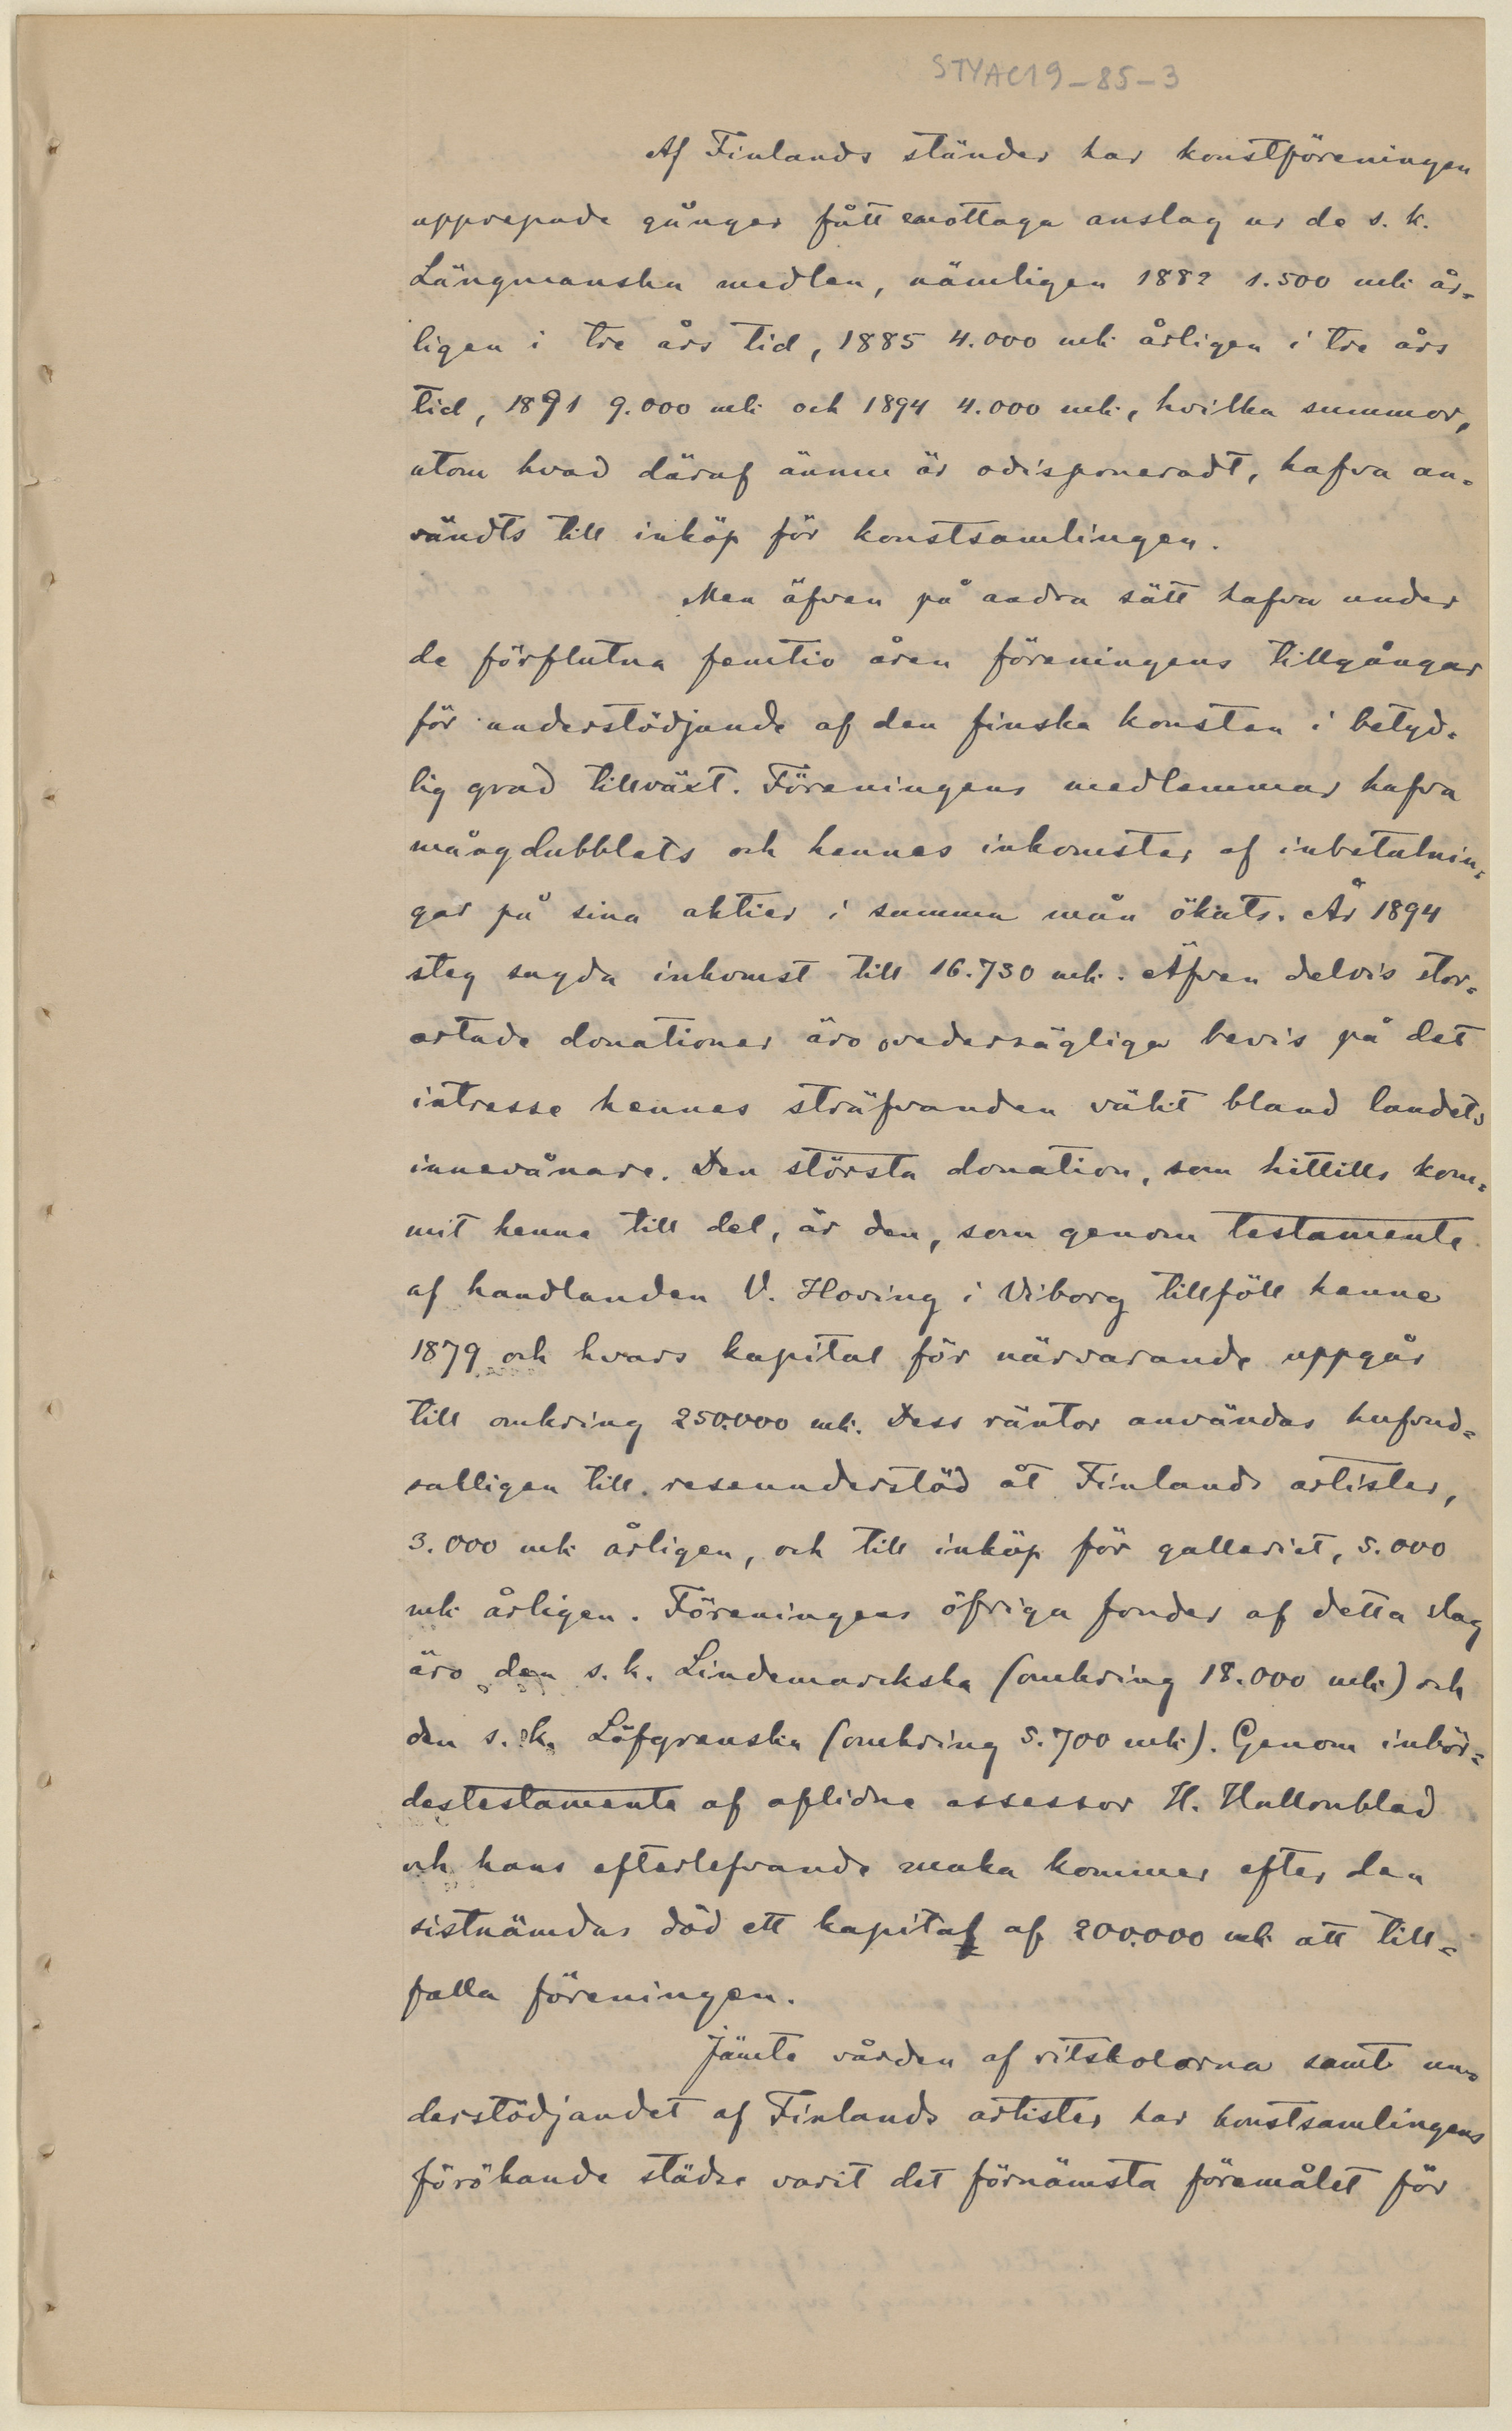 STYAC19-85-3
Af Finlands ständer har konstföreningen
upprepade gånger fått emottaga anslag ur de s. k.
Längmanska medlen, nämligen 1882 1.500 mk år=
ligen i tre års tid, 1885 4.000 mk årligen i tre års
tid, 1891 9.000 mk och 1894 4.000 mk, hvilka summor,
utom hvad däraf ännu är odisponeradt, hafva an=
vändts till inköp för konstsamlingen.
Men äfven på andra sätt hafva under
de förflutna femtio åren föreningens tillgångar
för understödjande af den finska konsten i betyd=
lig grad tillväxt. Föreningens medlemmar hafva
mångdubblats och hennes inkomster af inbetalnin=
gar på sina aktier i samma mån ökats. År 1894
steg sagda inkomst till 16.730 mk. Äfven delvis stor=
artade donationer äro ovedersägliga bevis på det
intresse hennes sträfvanden väkt bland landets
innevånare. Den största donation, som hittills kom=
mit henne till del, är den, som genom testamente
af handlanden V. Hoving i Viborg tillföll henne
1879 och hvars kapital för närvarande uppgår
till omkring 250.000 mk. Dess räntor användas hufvud=
sakligen till reseunderstöd åt Finlands artister,
3.000 mk årligen, och till inköp för galleriet, 5.000
mk årligen. Föreningens öfriga fonder af detta slag
äro den s. k. Lindemarckska (omkring 18.000 mk) och
den s. k. Löfgrenska (omkring 5.700 mk). Genom inbör=
destestamente af aflidne assessor H. Hallonblad
och hans efterlefvande maka kommer efter den
sistnämdas död ett kapital af 200.000 mk att till=
falla föreningen.
Jämte vården af ritskolorna samt un=
derstödjandet af Finlands artister har konstsamlingens
förökande städse varit det förnämsta föremålet för